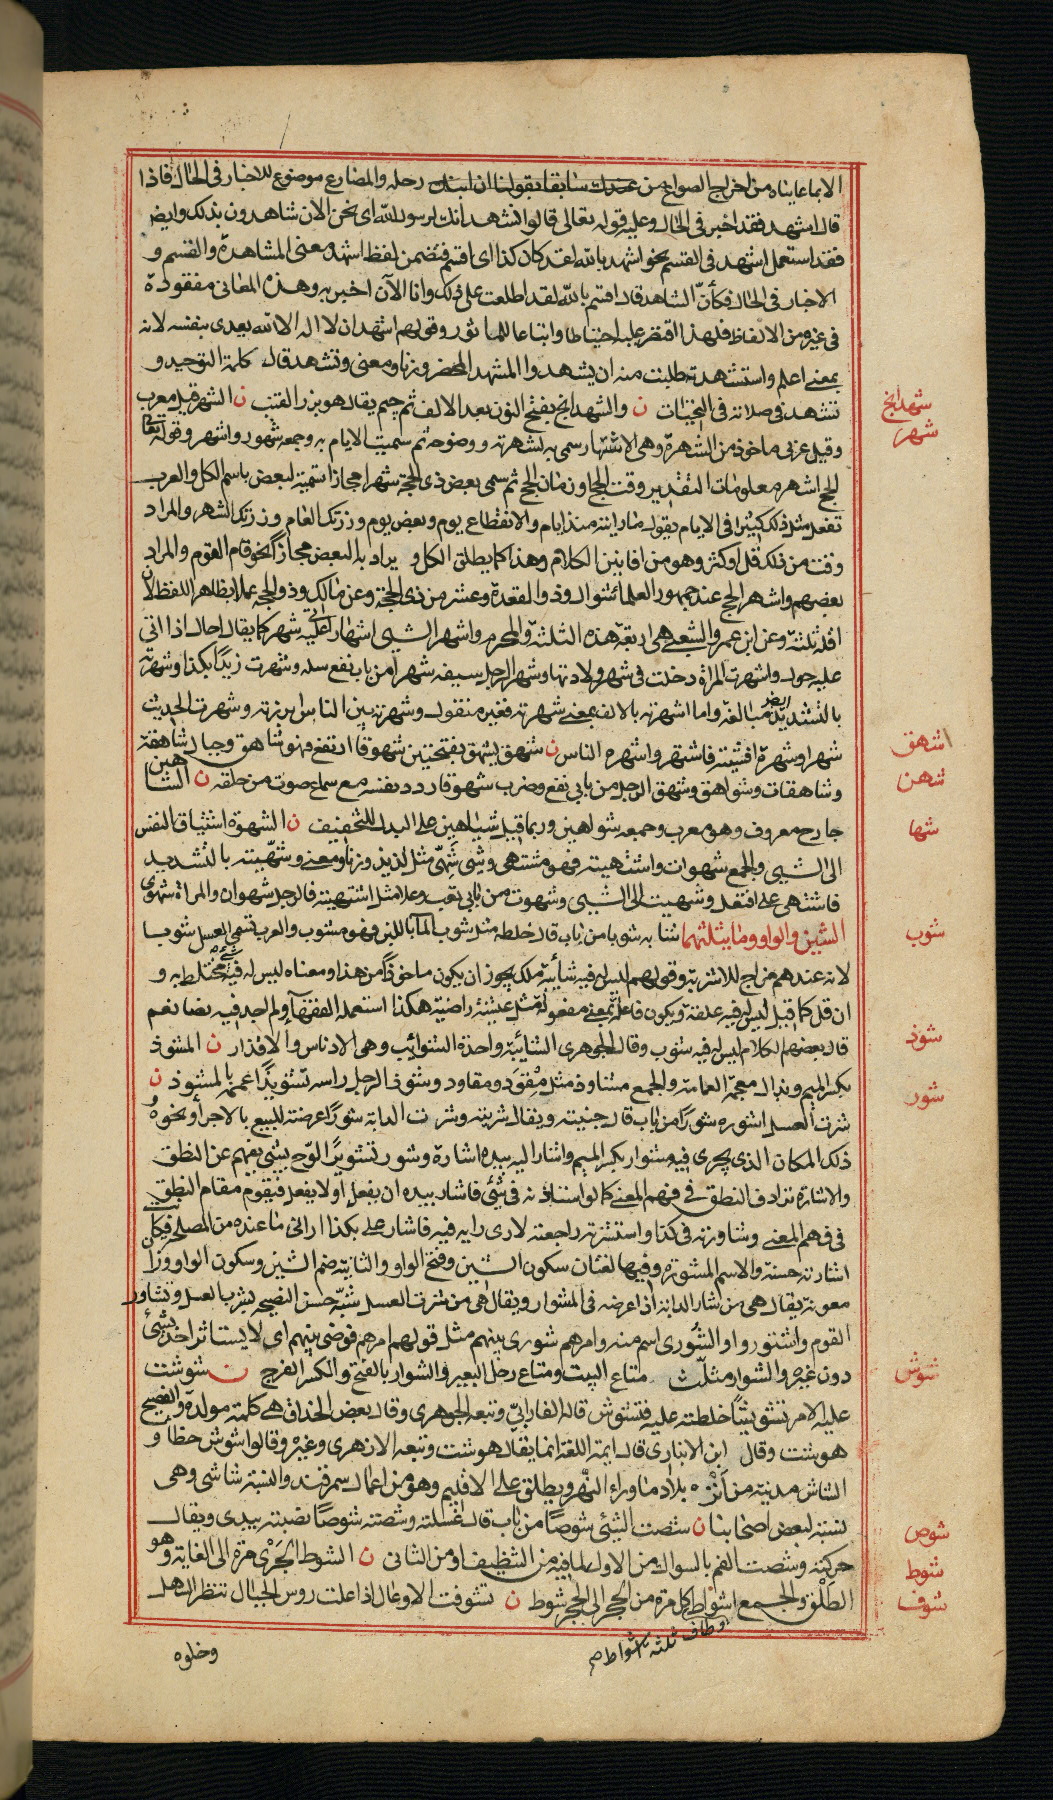 الا بما عايناه من اخراج الصواع من عندك سابقا بقولنا ان ابنك رحله والمضارع موضوع للاخبار في الحال فاذا
قال اشهد فقد اخبر في الحال وعليه قوله تعالى قالوا نشهد انك لرسول الله اى نحن الان شاهدون بذلك وايضا
فقد استعمل اشهد في القسم نحو اشهد بالله لقد كان كذا اى اقسم فتضمن لفظ اشهد معنى المشاهدة والقسم و
الاخبار في الحال فكأنّ الشاهد قال اقسم بالله لقد اطلعت على ذلك وانا الآن اخبر به وهذه المعانى مفقودة
في غيره من الالفاظ فلهذا اقتصر عليه احتياطا واتباعا للماثور وقولهم اشهد ان لا اله الا الله تعدى بنفسه لانه
بمعنى اعلم واستشهدته طلبت منه ان يشهد والمشهد المحضر وزنا ومعنى وتشهد قال كلمة التوحيد و
تشهد في صلاته في التحيات ن والشهدانج بفتح النون بعد الالف ثم جيم يقال هو بزر القنب ن الشهر قيل معرب
وقيل عربى ماخوذ من الشهرة وهى الاشتهار سمى به لشهرته ووضوحه ثم سميت الايام به وجمعه شهور واشهر وقوله تعالى
الحج اشهر معلومات التقدير وقت الحج او زمان الحج ثم سمى بعض ذى الحجة شهرا مجازا تسمية لبعض باسم الكل والعرب
تفعل مثل ذلك كثيرا في الايام يقول ما رايته منذ ايام والانقطاع يوم وبعض يوم وزرتك العام وزرتك الشهر والمراد
وقت من ذلك قل او كثر وهو من افانين الكلام وهذا كما يطلق الكل و يراد به البعض مجازا نحو قام القوم والمراد
بعضهم واشهر الحج عند جمهور العلماء شوال وذو القعدة وعشر من ذى الحجة وعن مالك وذو الحجة عملا بظاهر اللفظ لان
اقله ثلثة وعن ابن عمر والشعبى هى اربعة هذه الثلثة والمحرم واشهر الشيى اشهارا اتى عليه شهر كما يقال احال اذا اتى
عليه حول واشهرت المراة دخلت في شهر ولادتها وشهر الرجل سيفه شهرا من باب نفع سله وشهرت زيدا بكذا وشهرته
بالتشديد ايض مبالغة واما اشهرته بالالف بمعنى شهرته فغير منقول وشهرته بين الناس ابرزته وشهرت الحديث
شهرا وشهرة افشيته فاشتهر واشهره الناس ن شهق يشهق بفتحتين شهوقا ارتفع فهو شاهق وجبال شاهقة
وشاهقات وشواهق وشهق الرجل من بابى نفع وضرب شهوقا ردد نفسه مع سماع صوت من حلقه ن الشاهين
جارح معروف وهو معرب وجمعه شواهين وربما قيل شياهين على البدل للتخفيف ن الشهوة اشتياق النفس
الى الشيى والجمع شهوات واشتهيته فهو مشتهى وشيى شَهِىّ مثل لذيذ وزنا ومعنى وشهّيته بالتشديد
فاشتهى على افتعل وشهيت الى الشيى وشهوت من بابى تعب وعلا مثل اشتهيته فالرجل شهوان والمراة شهوى
الشين والواو وما يثلثهما شابه شوبا من باب قال خلطه مثل شوب المآ باللبن فهو مشوب والعرب تسمى العسل شوبا
لانه عندهم مزاج للاشربة وقولهم ليس فيه شائبة ملك يجوز ان يكون ماخوذا من هذا ومعناه ليس له فيه شيئ مختلط به و
ان قل كما قيل ليس له فيه علقة ويكون فاعلة بمعنى مفعولة مثل عيشة راضية هكذا استعمله الفقهآ ولم اجد فيه نصا نعم
قال بعضهم الكلام ليس له فيه شوب وقال الجوهرى الشائبة واحدة الشوائب وهى الادناس والاقذار ن المشوذ
بكسر الميم وبذال معجمة العمامة والجمع مشاوذ مثل مِقْوَد ومقاود وشوذ الرجل راسه تشويذا عممه بالمشوذ ن
شرت العسل اشوره شورا من باب قال جنيته ويقال شربته وشرت الدابة شورا عرضته للبيع بالاجرا ونحوهُ
ذلك المكان الذى يجرى فيه مشوار بكسر الميم واشار اليه بيده اشارة وشور تشويرا لوّح بشئ يفهم عن النطق
والاشارة ترادف النطق في فهم المعنى كما لو استاذنه في شيئ فاشار بيده ان يفعل او لا يفعل فيقوم مقام النطق
في فهم المعنى وشاورته في كذا واستشرته راجعته لارى رايه فيه فاشار على بكذا ارانى ما عنده من المصلحة فكانت
اشارته حسنة والاسم المشورة وفيها لغتان سكون الشين وفتح الواو والثانية ضم الشين وسكون الواو وزان
معونة يقال هى من شار الدابة اذا عرضه في المشوار ويقال هى من شرت العسل شبّه حسن النصيحة بشرب العسل وتشاور
القوم واشتوروا والشُورى اسم منه وامرهم شورى بينهم مثل قولهم امرهم فوضى بينهم اى لا يستاثر احد بشئ
دون غيره والشوار مثلّث متاع البيت ومتاع رحل البعير والشوار بالفتح والكسر الفرج ن شوشت
عليه الامر تشويشًا خلطته عليه فتشوش قاله الفارابيّ وتبعه الجوهرى وقال بعض الحذاق هى كلمة مولدة والفصيح
هوشت وقال ابن الانبارى قال ايمة اللغة انما يقال هوشت وتبعه الازهرى وغيره وقالوا شوش خطا و
الشاش مدينة من اَنْزَه بلاد ما وراء النهر ويطلق على الاقليم وهو من اعمال سمرقند والنسبة شاشى وهى
نسبة لبعض اصحابنا ن شصت الشئ شوصًا من باب قال غسلته وشصته شوصًا نصبته بيدى ويقال
حركته وشصت الفم بالسواك من الاول لما فيه من التنظيف او من الثانى ن الشوط الجَرْى مرة الى الغاية وهو
الطَلْق والجمع اشواط كل مرة من الحجر الى الحجر شوط ن تشوفت الاوعال اذا علت روس الجبال تنظر السهل
وطاف ثلثة اشواط م
وخلوه
شهدانج
شهر
شهق
شهن
شها
شوب
شوذ
شور
شوش
شوص
شوط
شوف